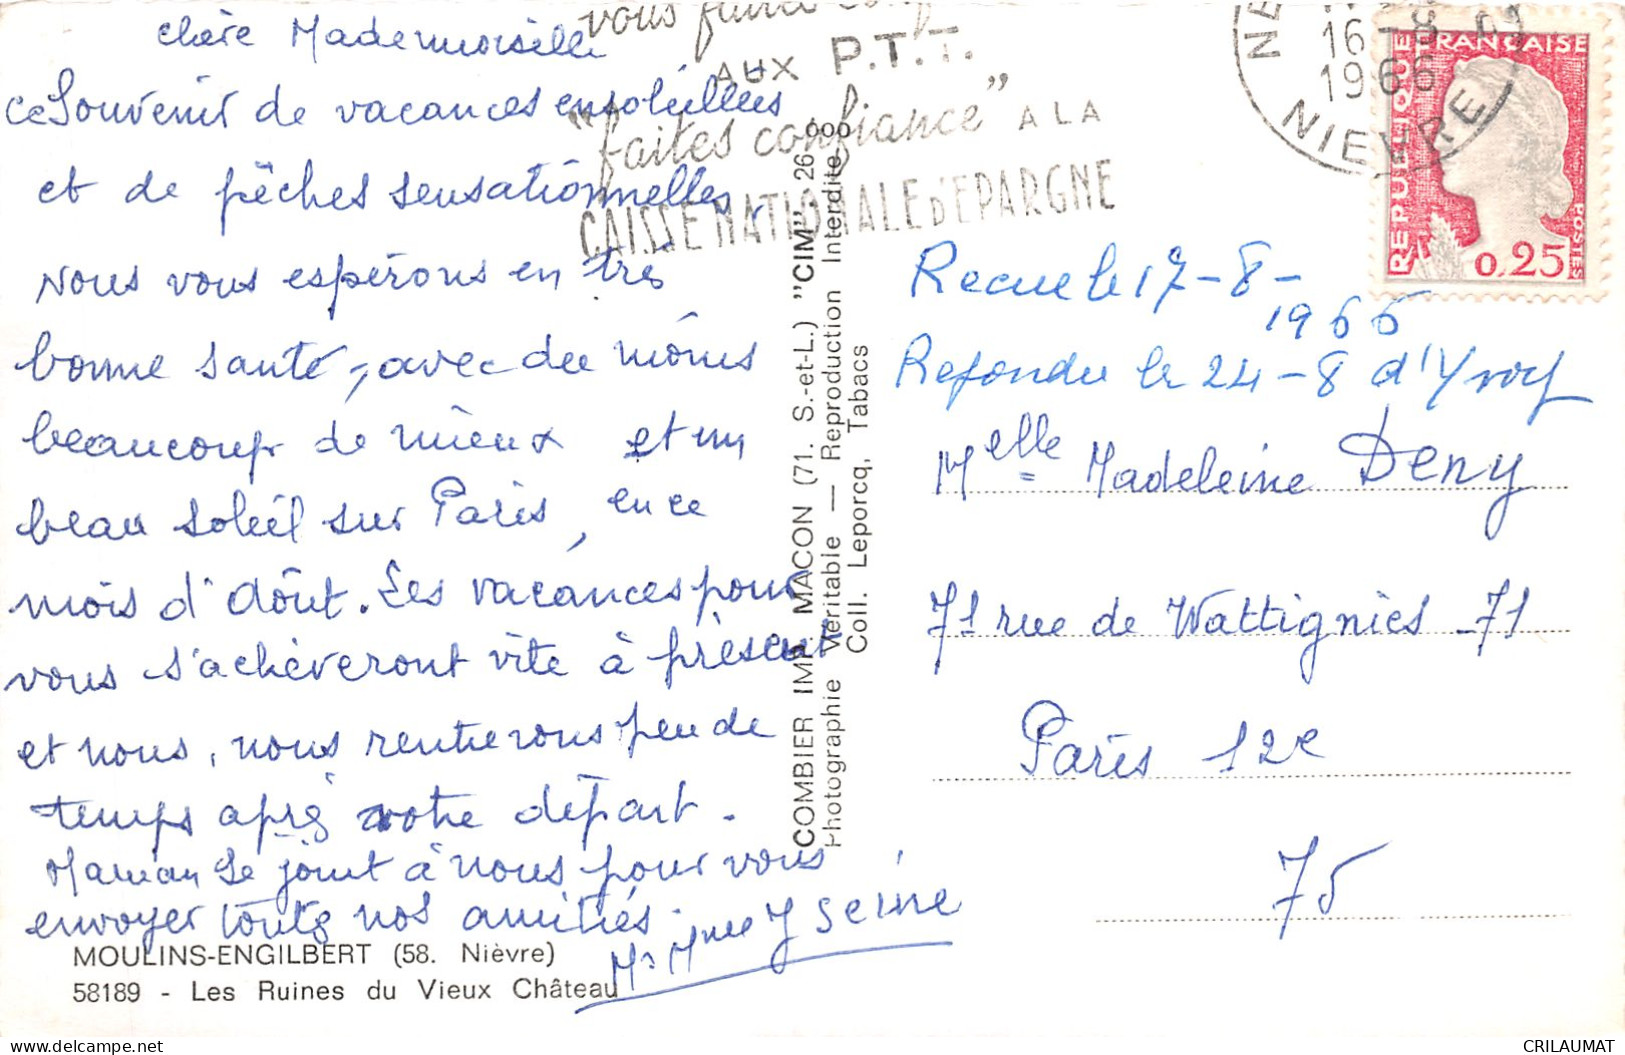 chère Mademoiselle
ce Souvenir de vacances ensoleillées
et de pêches sensationnelles.
Nous vous espérons en très
bonne santé, avec du moins
beaucoup de mieux et un
beau soleil sur Paris, en ce
mois d'Août. Les vacances pour
vous s'achèveront vite à présent
et nous, nous rentrerons peu de
temps après votre départ.
Maman se joint à nous pour vous
envoyer toutes nos amitiés.
Mr Mme Y Seine
MOULINS-ENGILBERT (58. Nièvre)
58189 - Les Ruines du Vieux Château
COMBIER IMP. MACON (71. S.-et-L.) "CIM" 26
Photographie Véritable — Reproduction Interdite
Coll. Leporcq, Tabacs
vous faire
AUX P.T.T.
"faites confiance" A LA
CAISSE NATIONALE d'EPARGNE
16-8
1966
NIEVRE
REPUBLIQUE FRANÇAISE
POSTES
0,25
Recue le 17-8-
1966
Repondu le 24-8 d'Yvoy
Melle Madeleine Deny
71 rue de Wattignies 71
Paris 12e
75
delcampe.net
CRILAUMAT